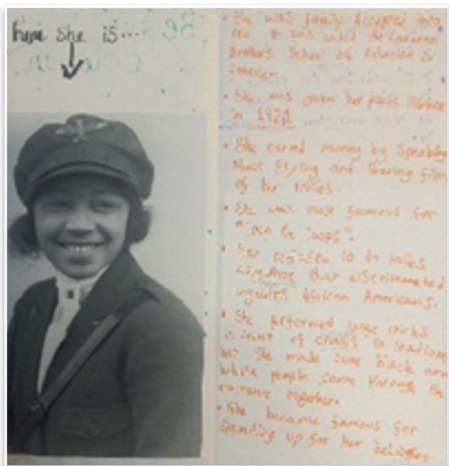 here she is...
• She was finally Accepted into
one. It was called the Caudron
Brother's School of Aviation in
France.
• She was given her pilots licence
in 1921
• She earnd money by Speaking
about flying and sharing film
of her tricks.
• She was most famous for
"loop the loops".
• She refused to do talks
anywhere that discriminated
against African Americans.
• She performed some tricks
in front of crowds in Stadium
but She made sure black and
white people came through the
entrance together.
• She became famous for
Standing up for her beliefs